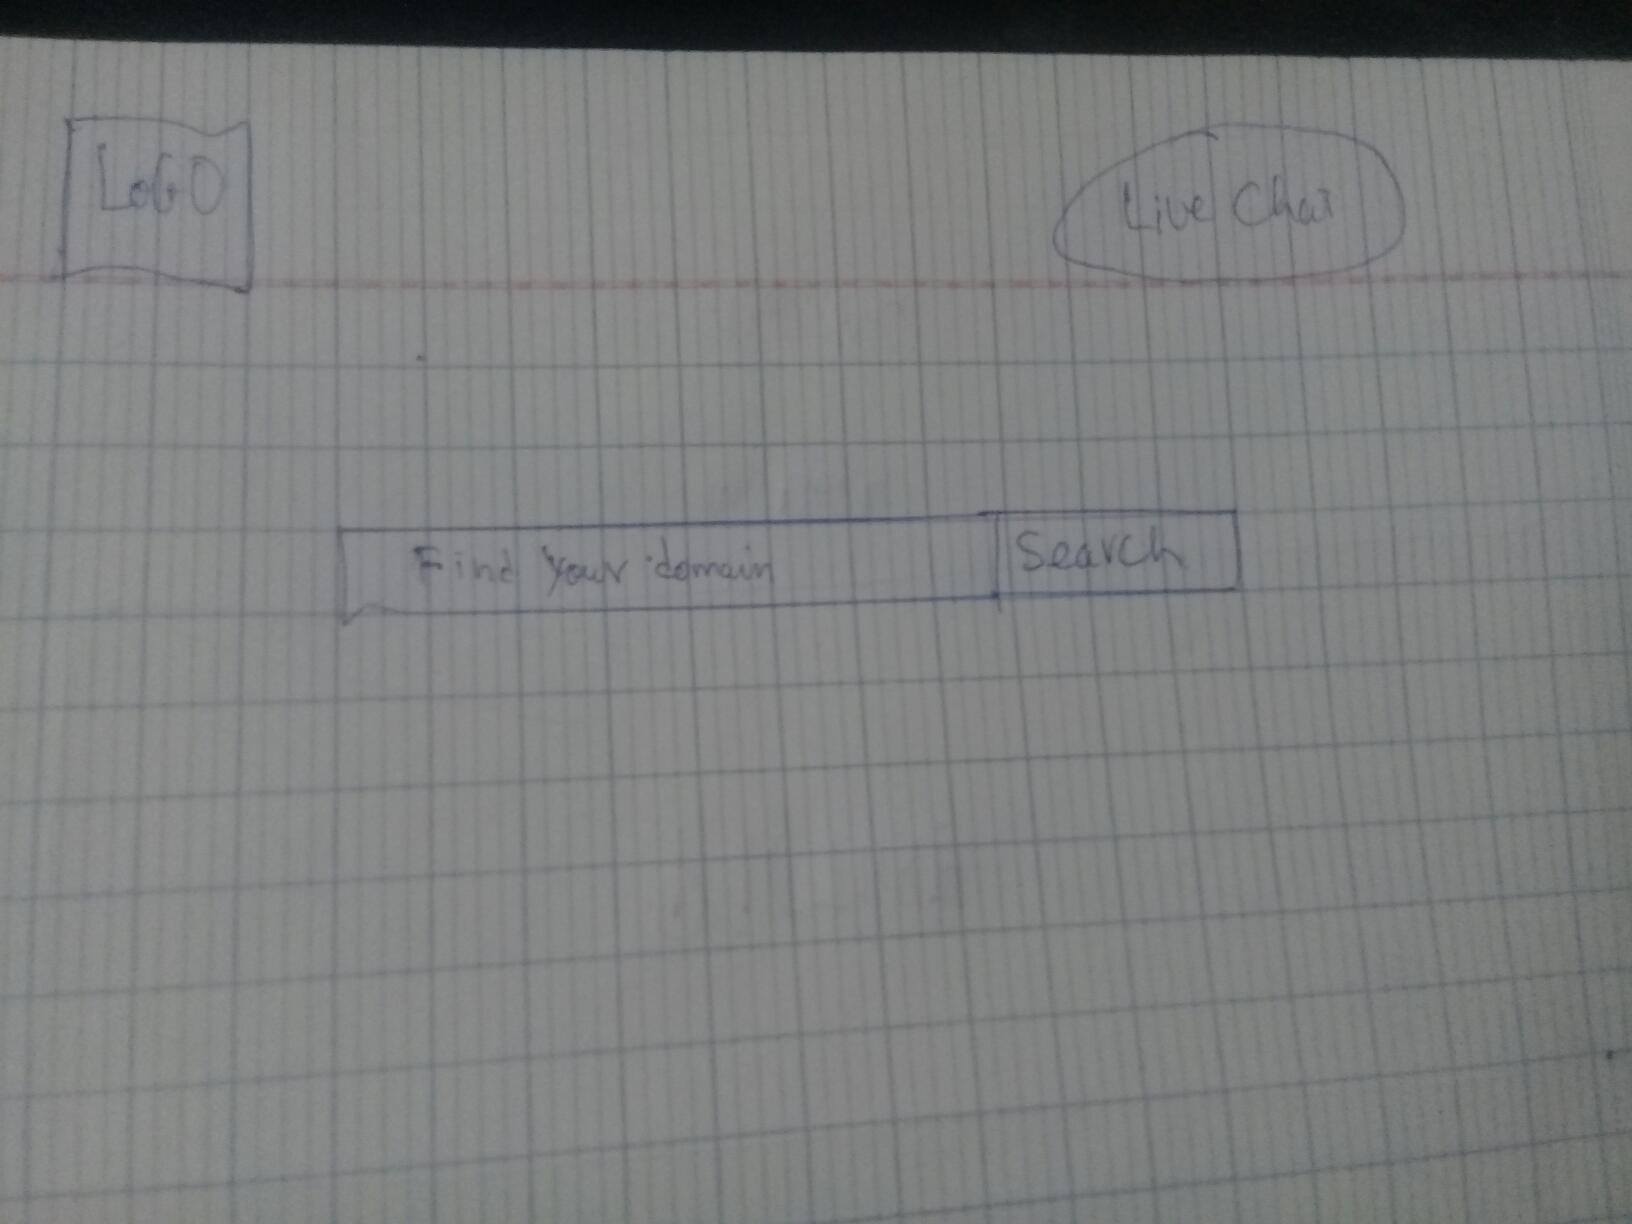 LOGO
Live Chat
Find your domain
Search